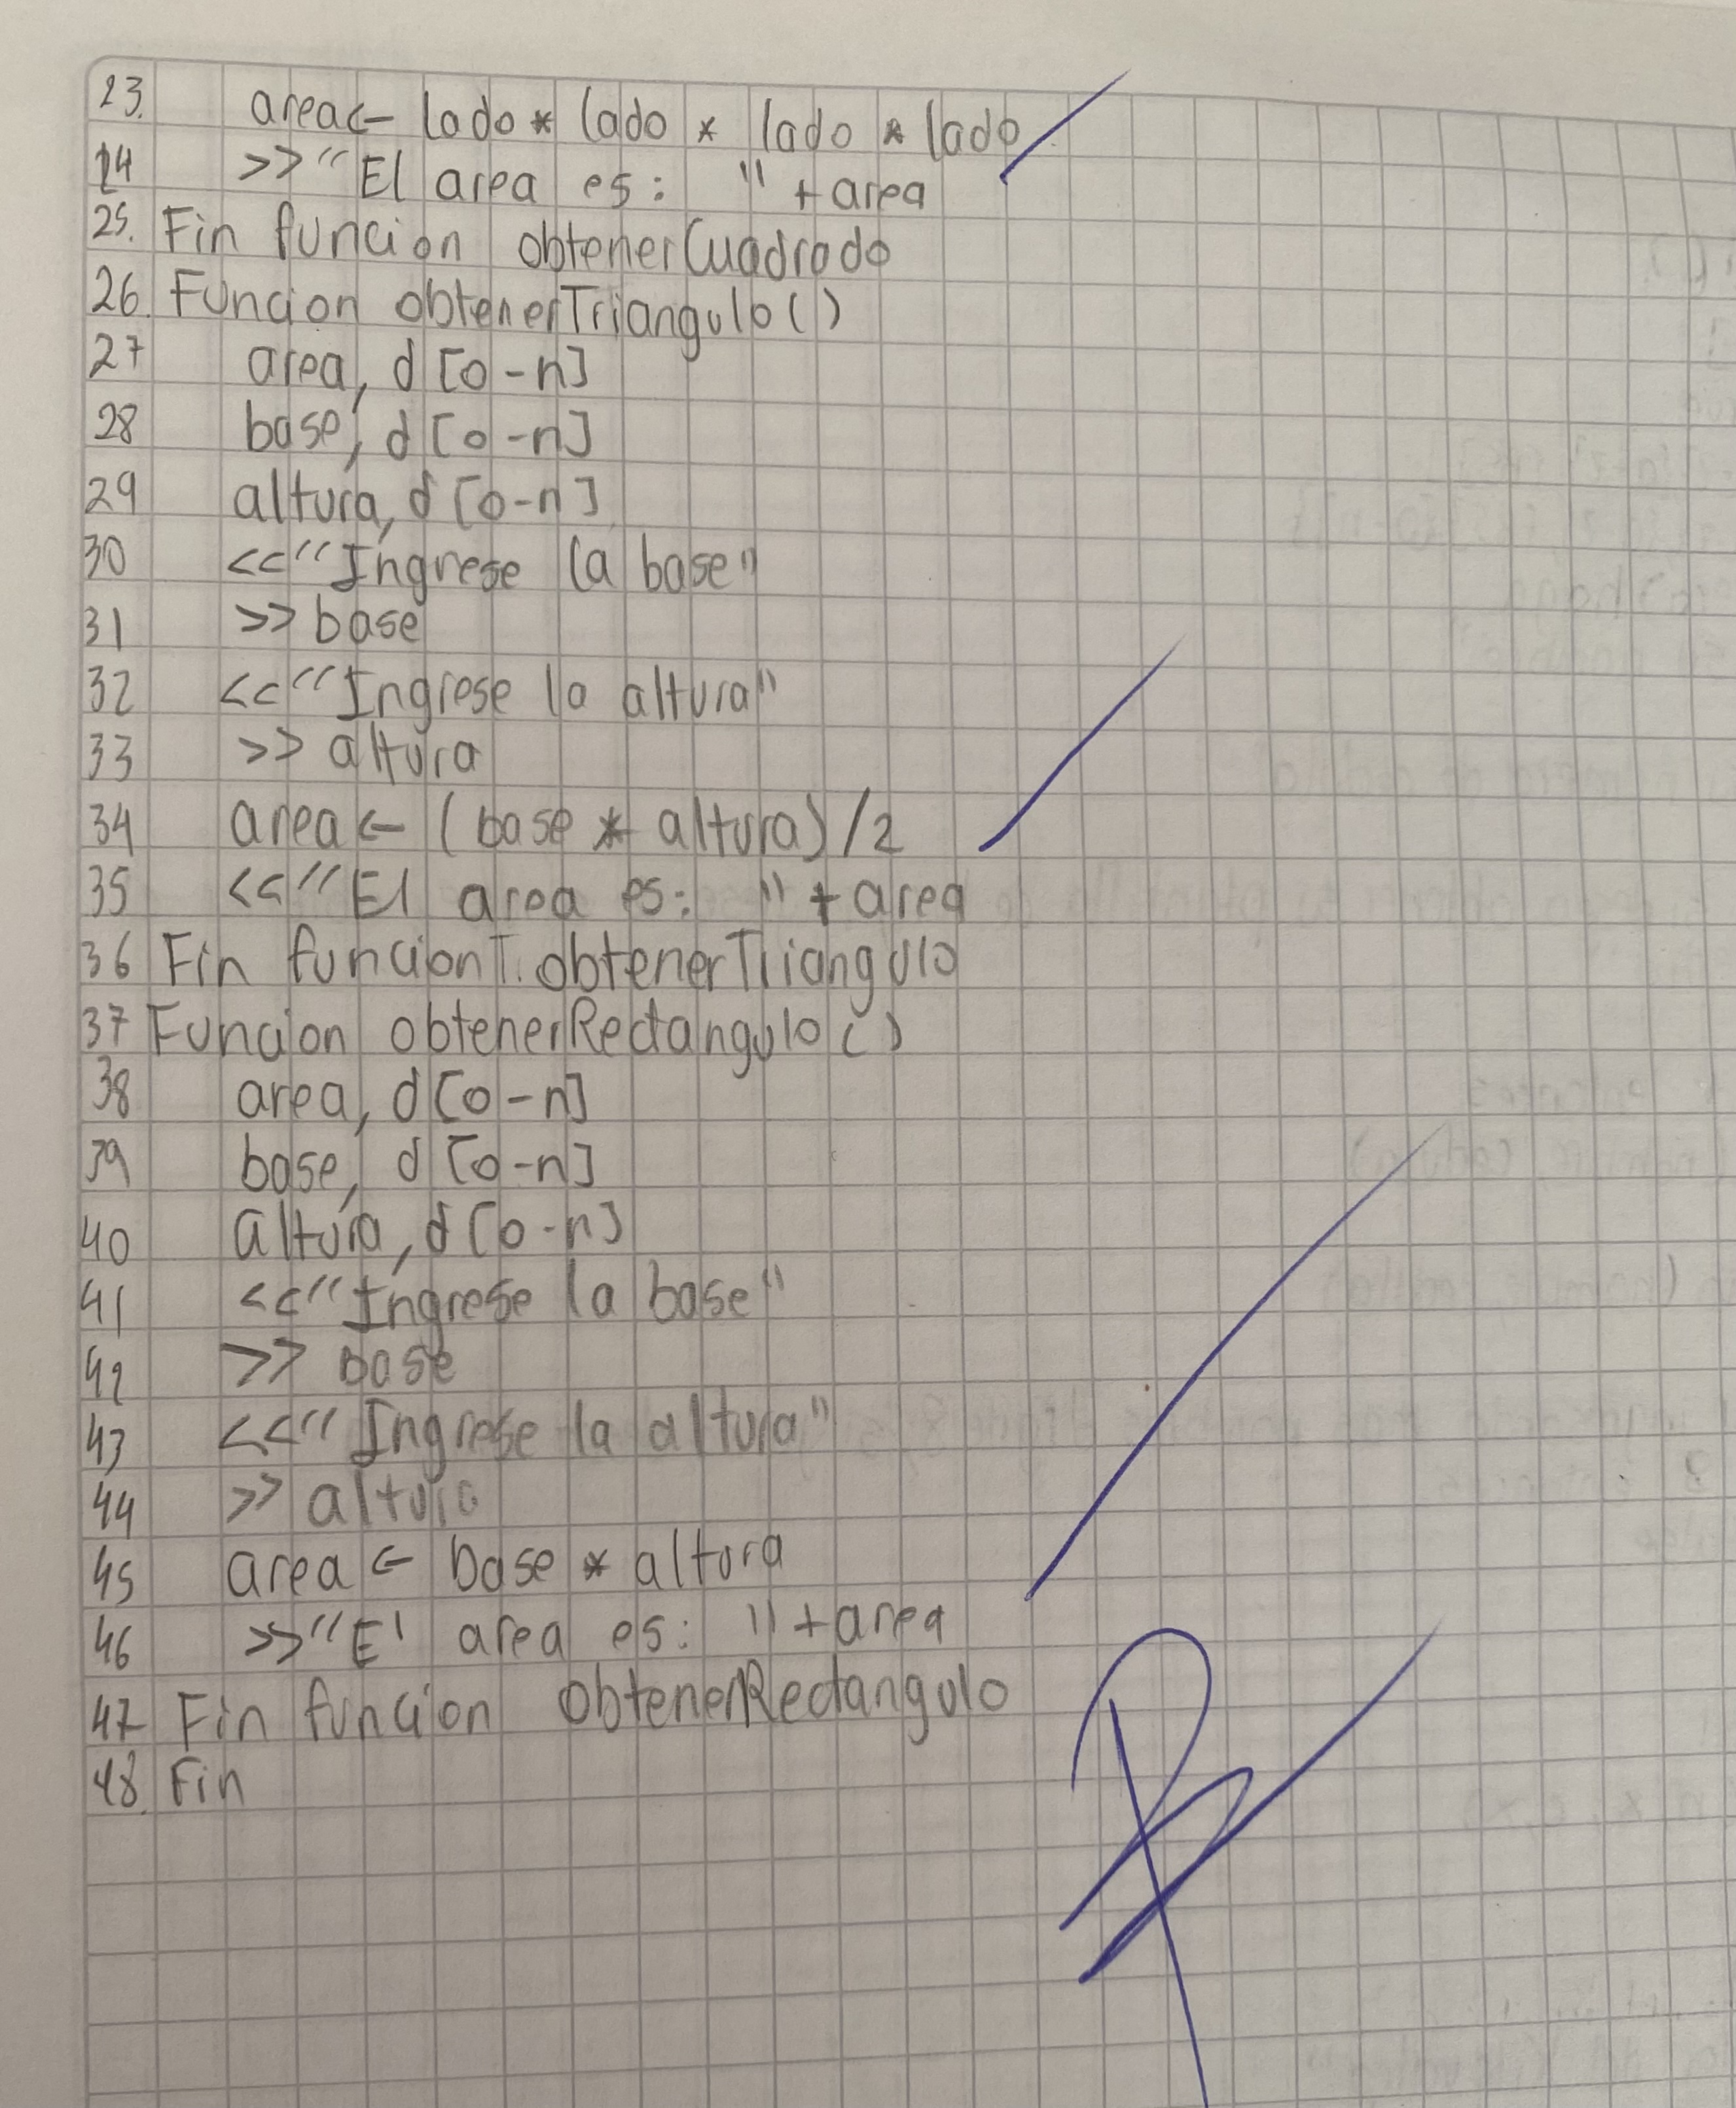 23. area<- lado * lado * lado * lado
24 >>"El area es: " + area
25. Fin funcion obtenerCuadrado
26. Funcion obtenerTriangulo()
27 area, d [0-n]
28 base, d [0-n]
29 altura, d [0-n]
30 <<"Ingrese la base"
31 >> base
32 <<"Ingrese la altura"
33 >> altura
34 area <- (base * altura)/2
35 <<"El area es: " + area
36 Fin funcionT. obtenerTriangulo
37 Funcion obtenerRectangulo()
38 area, d [0-n]
39 base, d [0-n]
40 altura, d [0-n]
41 <<"Ingrese la base"
42 >> base
43 <<"Ingrese la altura"
44 >> altura
45 area <- base * altura
46 >>"El area es: "+area
47 Fin funcion obtenerRectangulo
48. Fin